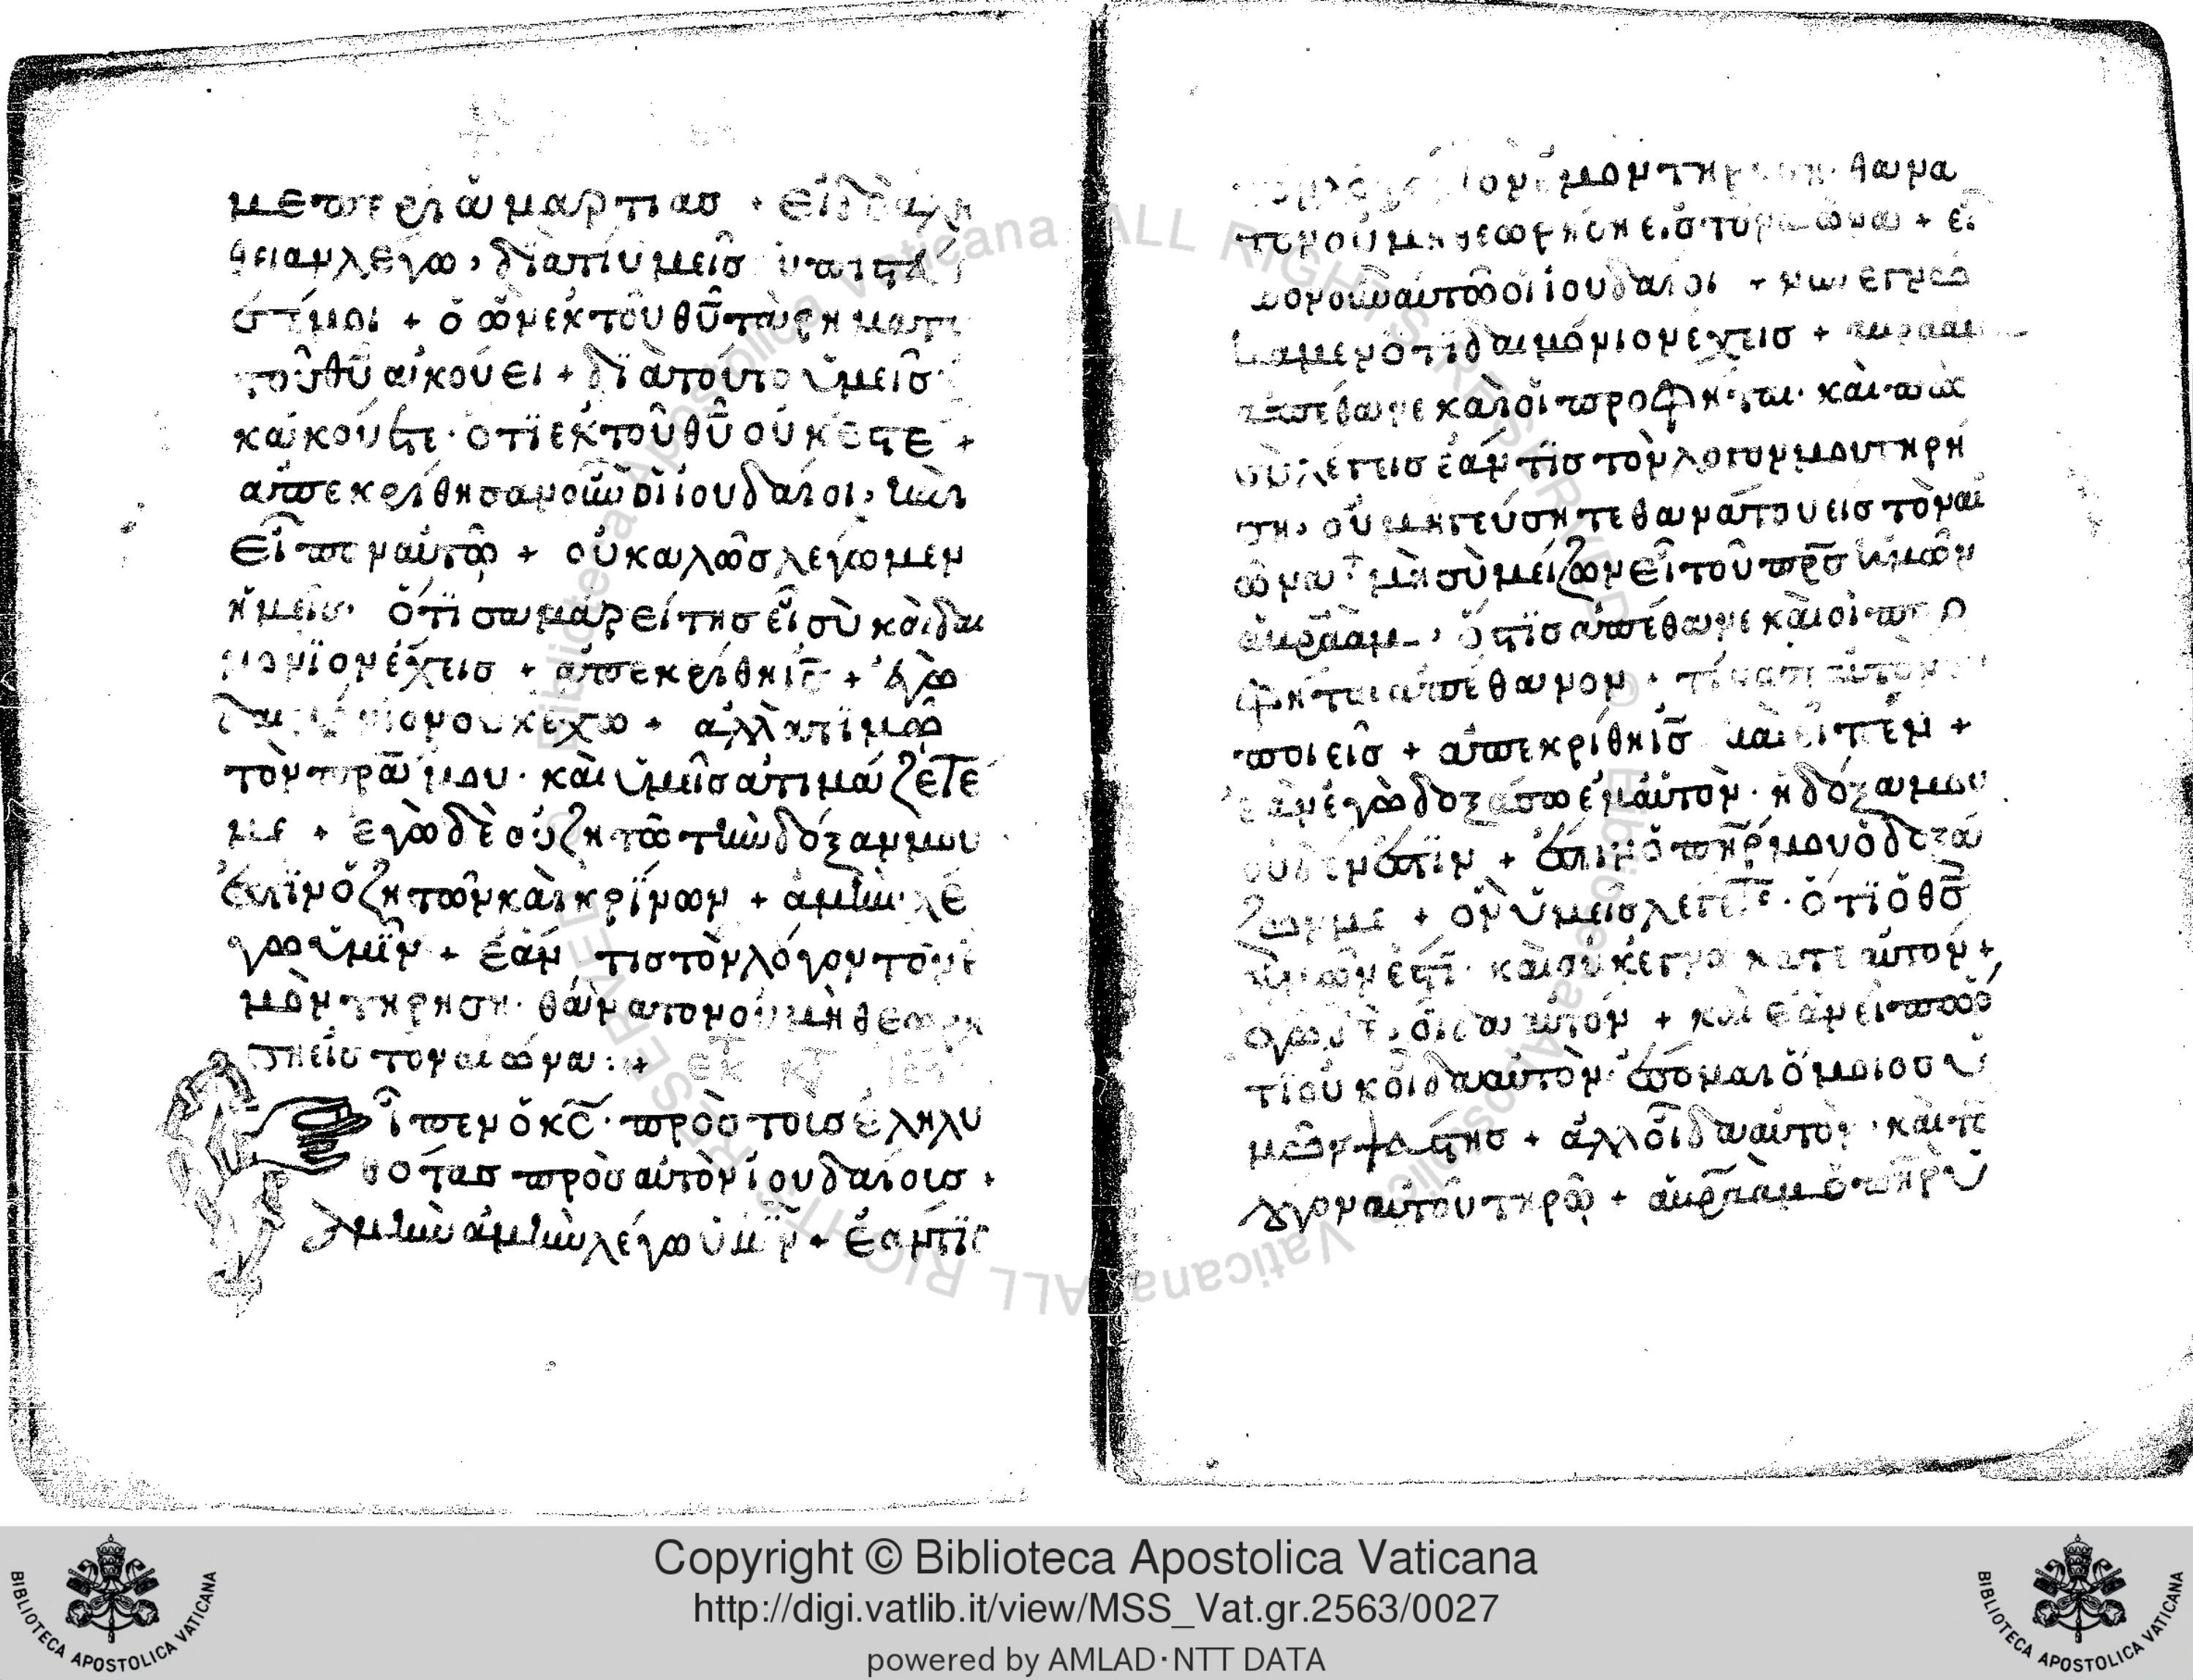 με περι ἁμαρτιασ + εἰ δὲ ἀλή
θειαν λέγω, διατί ὑμεῖσ
στέ μοι + ὁ ὢν ἐκ τοῦ θῦ τὰ ρήματα
τοῦ θῦ ἀκούει + διὰ τοῦτο ὑμεῖσ
κακούετε · ὅτι ἐκ τοῦ θῦ οὐκ ἐστε +
ἀπεκρίθησαν οὖν οἱ ἰουδαίοι, καὶ
εἶπον αὐτῶ + οὐ καλῶσ λέγωμεν
ἡμεῖσ · ὅτι σαμαρείτησ εἶ σὺ καὶ δαι
μονϊον έχεισ + ἀπεκρίθη ἰσ + ἐγὼ
δαιμόνιον οὐκ έχω + ἀλλα τιμῶ
τὸν πρᾱ μου · καὶ ὑμεῖσ ἀτιμάζετέ
με + ἐγὼ δὲ οὐ ζητῶ τὴν δόξαν μου
έστϊν ὁ ζητῶν καὶ κρίνων + ἀμὴν λέ
γω ὑμῖν + ἐάν τισ τὸν λόγον τὸν ἐ
μὸν τηρήση · θάνατον οὐ μὴ θεωρή
ση εἰσ τον αιῶνα : +
Εἶπεν ὁ κσ̄ · πρὸσ τοισ ἐληλυ
θότασ πρὸσ αὐτὸν ἰουδαίοισ ·
ἀμὴν ἀμὴν λέγω ὑμῖν + ἐάν τϊσ
λόγον τὸν ἐμὸν τηρήση · θανα
τον οὐ μὴ θεωρήση εἰσ τὸν αἰῶνα + εἶ
πον οὖν αὐτῶ οἱ ἰουδαίοι + νῦν ἐγνώ
καμεν ὅτι δαιμόνιον έχεισ + ἀβραὰμ
ἀπέθανε καὶ οἱ προφήται · καὶ
σὺ λέγεισ ἐάν τίσ τὸν λόγον μου τηρή
ση, οὐ μὴ γεύσητε θανάτου εἰσ τὸν αἰ
ῶνα + μὴ σὺ μείζων εἶ τοῦ πρσ̄ ἡμῶν
ἀβραὰμ, ὅστϊσ ἀπέθανε καὶ οἱ προ
φήται ἀπέθανον · τίνα
ποιεῖσ + ἀπεκρίθη ἰσ̄ καὶ εἶπεν +
ἐὰν ἐγὼ δοξάσω ἐμαὐτὸν · ἡ δόξα μου
οὐδέν ἐστϊν + έστιν ὁ πηρ̄ μου ὁ δοξά
ζων με + ὃν ὑμεῖσ λέγετε · ὅτϊ ὁ θσ̄
ἡμῶν ἐστὶ · καὶ οὐκ ἐγνώκατε αὐτόν +
ἐγὼ δὲ οἶδα αὐτόν + καὶ ἐὰν εἴπω ὅ
τι οὐκ οἶδα αὐτὸν · έσομαι ὅμοιοσ ὑ
μῶν ψεύστησ + ἀλλ οἶδα αὐτὸν · καὶ τὸ
λόγον αὐτοῦ τηρῶ + ἀβραὰμ ὁ πηρ̄ ὑ
Copyright © Biblioteca Apostolica Vaticana
http://digi.vatlib.it/view/MSS_Vat.gr.2563/0027
powered by AMLAD·NTT DATA
BIBLIOTECA APOSTOLICA VATICANA
BIBLIOTECA APOSTOLICA VATICANA